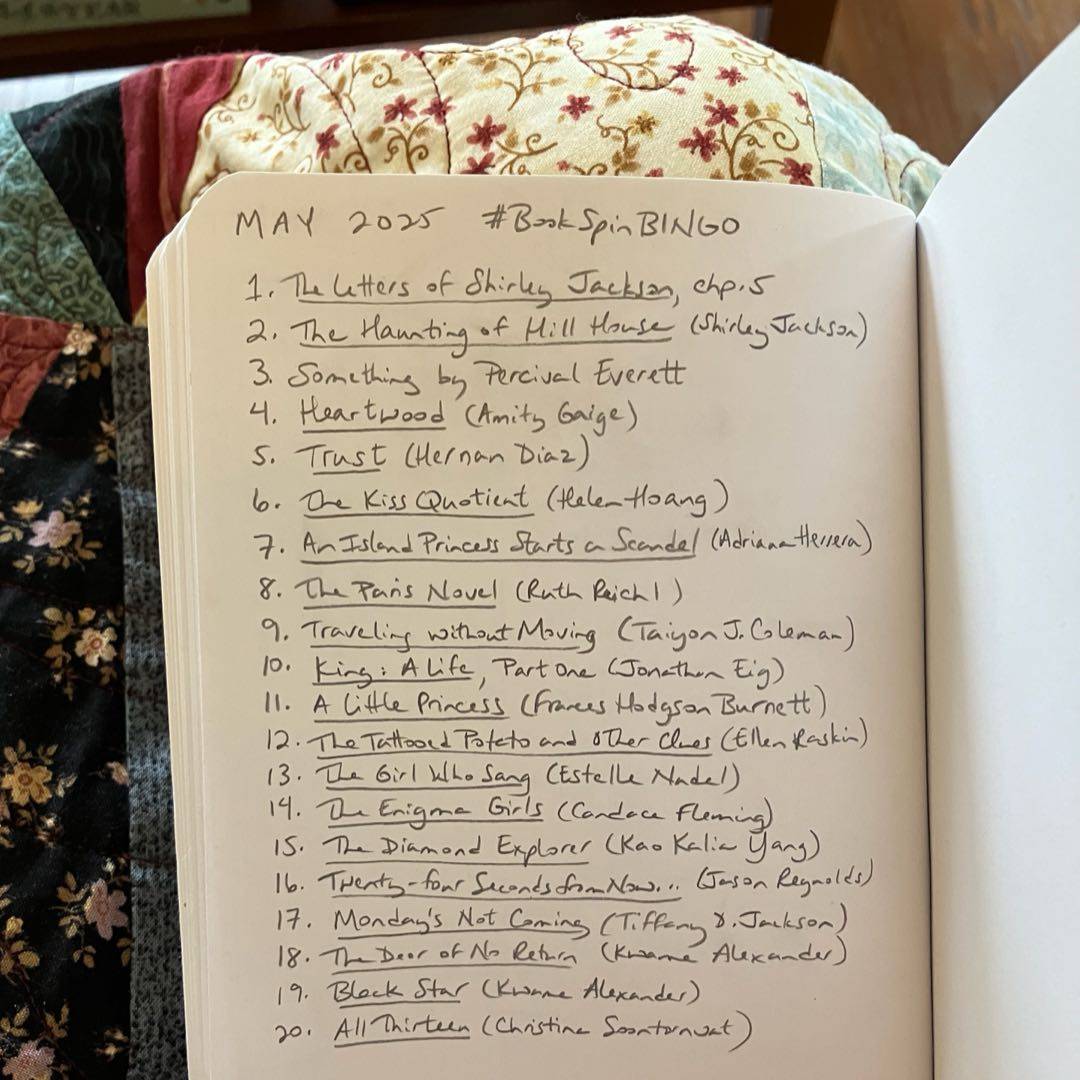 MAY 2025 #BookSpinBINGO
1. The Letters of Shirley Jackson, chp. 5
2. The Haunting of Hill House (Shirley Jackson)
3. Something by Percival Everett
4. Heartwood (Amity Gaige)
5. Trust (Hernan Diaz)
6. The Kiss Quotient (Helen Hoang)
7. An Island Princess Starts a Scandel (Adriana Herrera)
8. The Paris Novel (Ruth Reichl)
9. Traveling without Moving (Taiyon J. Coleman)
10. King: A Life, Part One (Jonathan Eig)
11. A Little Princess (Frances Hodgson Burnett)
12. The Tattooed Potato and Other Clues (Ellen Raskin)
13. The Girl Who Sang (Estelle Nadel)
14. The Enigma Girls (Candace Fleming)
15. The Diamond Explorer (Kao Kalia Yang)
16. Twenty-four Seconds from Now... (Jason Reynolds)
17. Monday's Not Coming (Tiffany D. Jackson)
18. The Door of No Return (Kwame Alexander)
19. Black Star (Kwame Alexander)
20. All Thirteen (Christina Soontornvat)